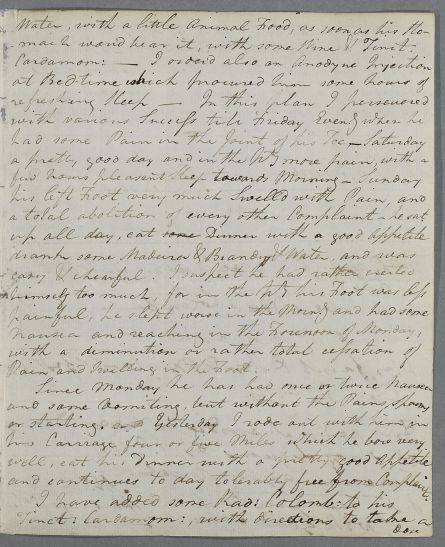 Water, with a little Animal Food, as soon as his Sto-
mach would bear it, with some Wine & Tinct:
Cardamom: — I order'd also an Anodyne Injection
at Bedtime which procured him some hours of
refreshing Sleep — In this plan I persevered
with various Success till Friday Even^g when he
had some Pain in the Joint of his Toe — Saturday
a pretty good day and in the N^t more pain, with a
few hours pleasant Sleep towards Morning — Sunday
his left Foot very much Swell'd with Pain, and
a total abolition of every other Complaint — he sat
up all day, eat some Dinner with a good Appetite
drank some Madeira & Brandy & Water, and was
easy & chearful. I suspect he had rather exerted
himself too much, for in the N^t his Foot was less
painful, he slept worse in the Morn^g and had some
Nausea and reaching in the Forenoon of Monday,
with a diminution or rather total cessation of
Pain and Swelling in the Foot.
Since Monday he has had once or twice Nausea
and some Vomiting, but without the Pains, Spasms
or startings. Yesterday I rode out with him in
his Carriage four or five Miles which he bore very
well, eat his Dinner with a pretty good Appetite
and continues to day tolerably free from Complaint.
I have added some Rad: Colomb: to his
Tinct: Cardamom:, with directions to take a
dose